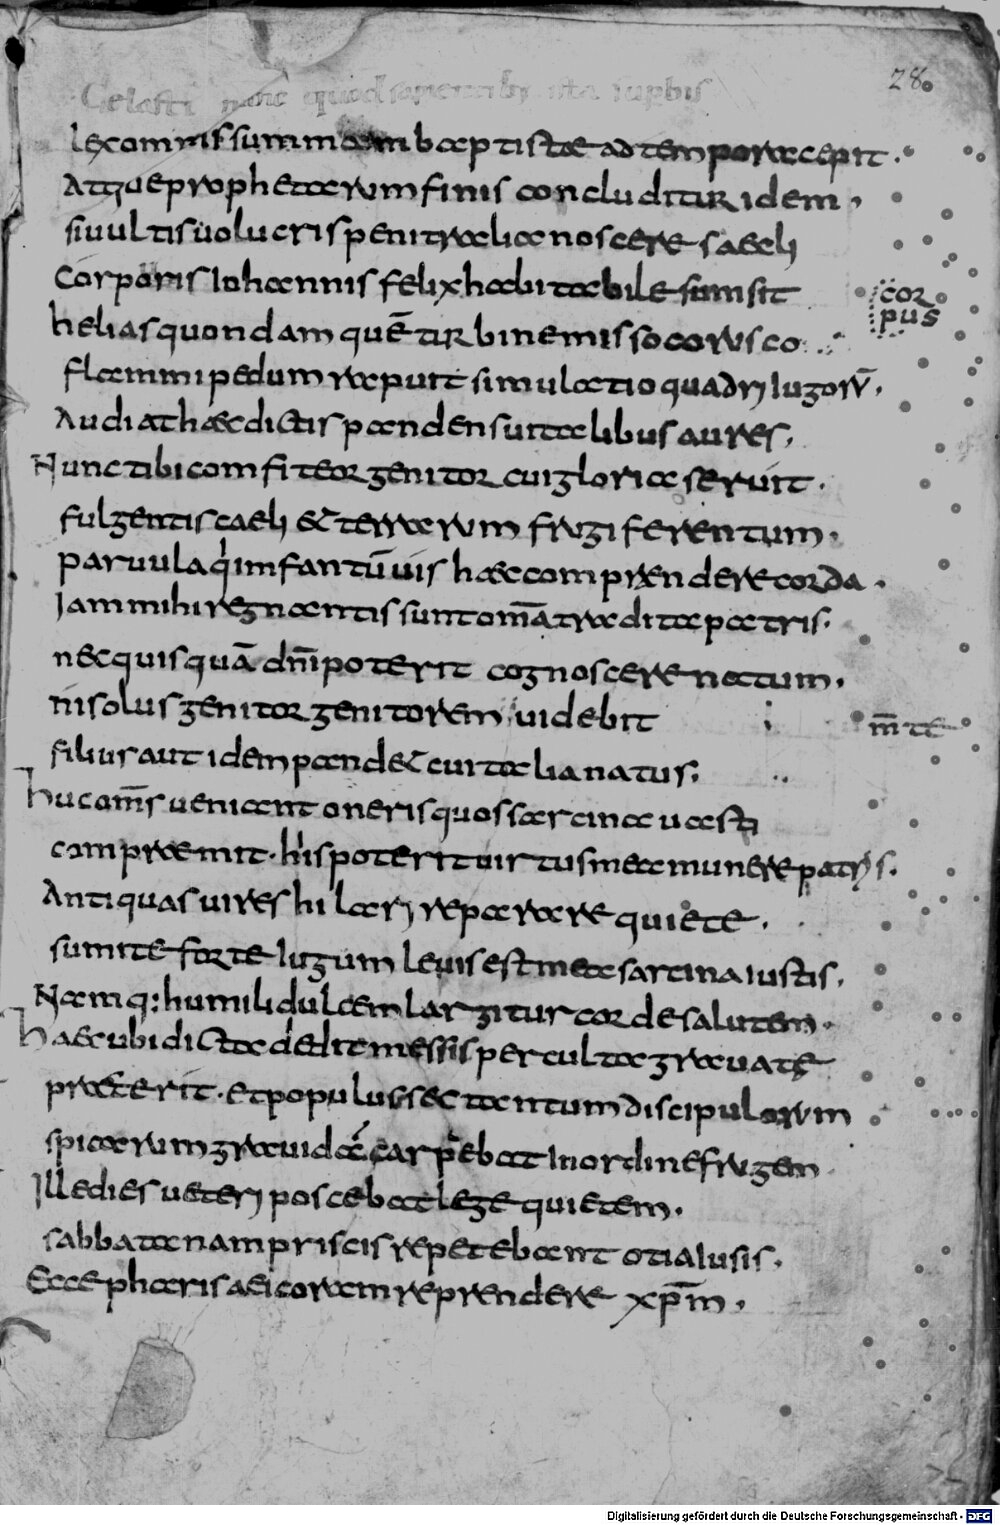 Celasti nunc quod sapientib; ista supbis
28
lęcomnis summam baptistae ad tempora cepit.
Atque prophetarum finis concluditur idem,
si uultis uolucris penitralia noscere saecli
Corporis Iohannis felix habitabile sumsit
corpus
helias quondam quē turbine misso corusco
flammipedum rapuit simulatio quadriiugorū,
Audiat haec dictis pandens uitalibus aures,
Nunc tibi comfiteor genitor cui gloria seruit.
fulgentis caeli & terrarum frugiferentum,
paruula qi imfantū uis haec comprendere corda.
Iam mihi regnantis sunt omā tradita patris,
nec quisquā dnī poterit cognoscere natum,
ni solus genitor genitorem, uidebit
m̄ te
filius aut idem pandet cui talia natus;
huc omīs ueniant oneris quos sarcina uasta
compraemit. his poterit uirtus mea munere patris.
Antiquas uires hilari reparare quiete.
sumite forte iugum leuis est mea sarcina iustis,
Namq: humili dulcem largitur corde salutem.
haec ubi dicta dedit messis per culta grauatę
praeterit. et populus sectantum discipulorum
spicarum grauida carpebat in ordine frugem
Ille dies ueteri poscebat lege quietem.
sabbata nam priscis repetebant otia iusis.
Ecce pharisaei coram reprendere xp̄m,
Digitalisierung gefördert durch die Deutsche Forschungsgemeinschaft - DFG